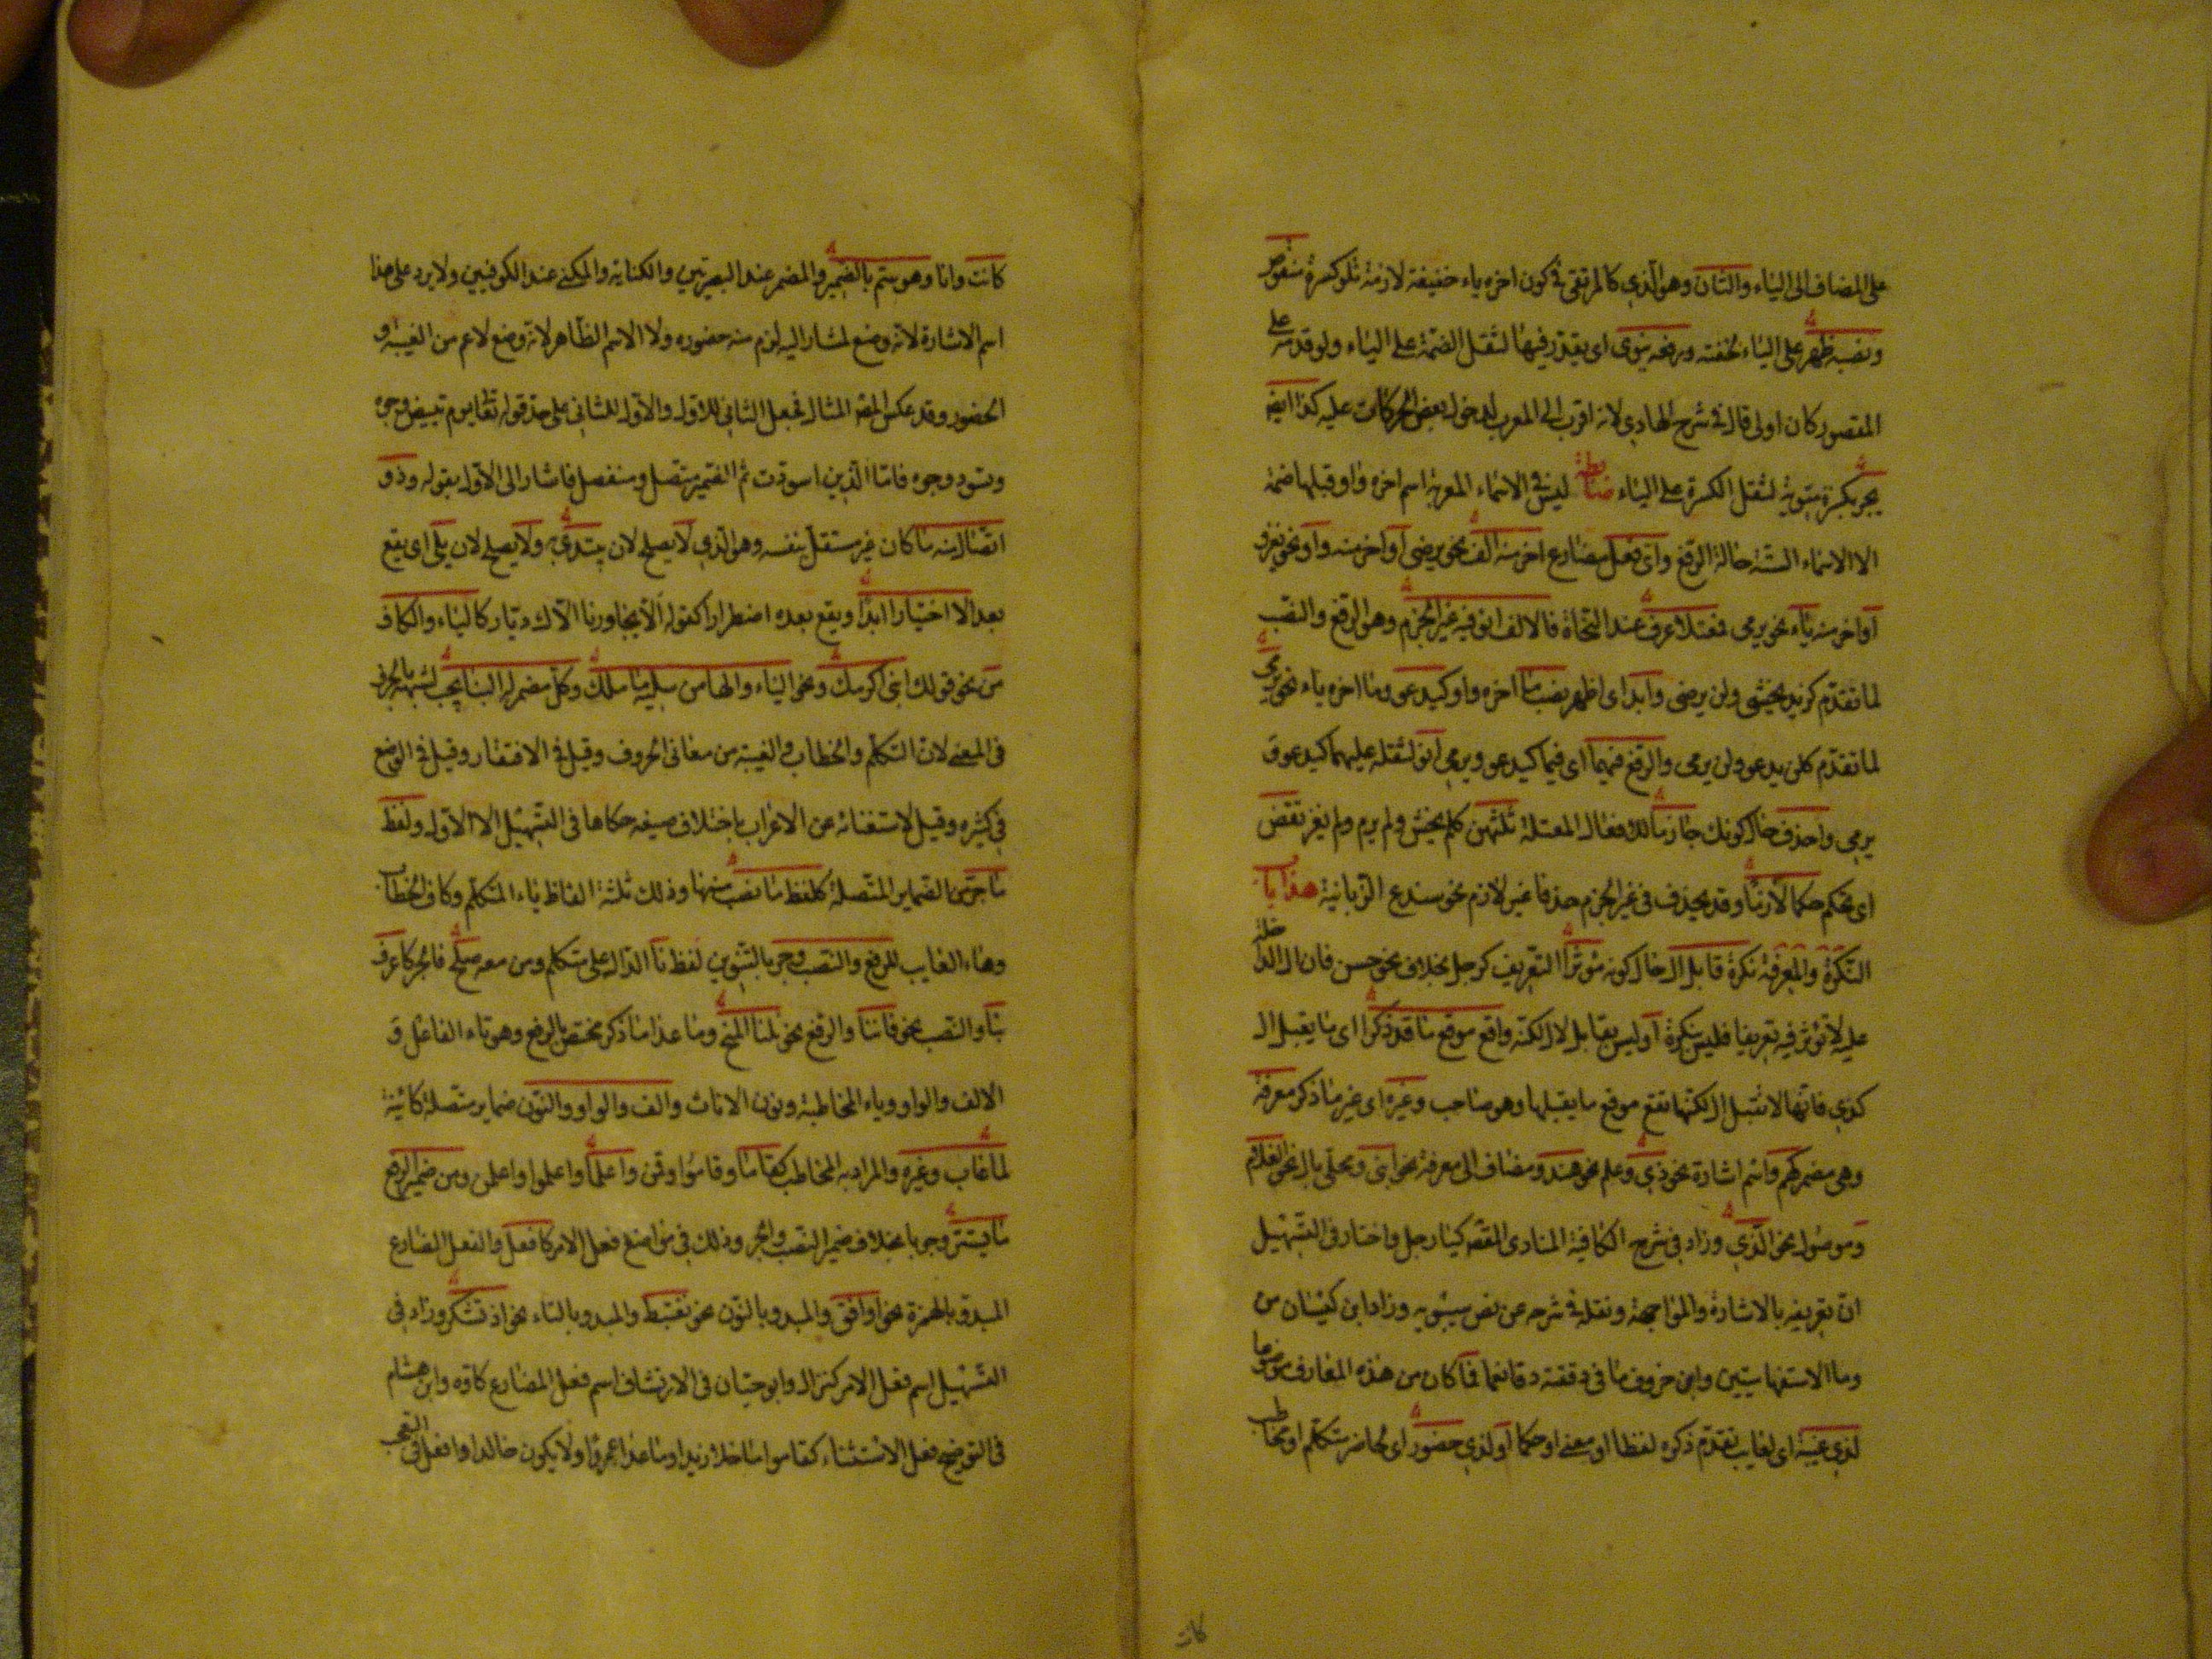 على المضاف الى الياء والثان وهو الذي كالمرتقى في كون اخره ياء خفيفة لازمة تلو كسرة منقوص
ونصبه ظهر على الياء لخفته ورفعه ينوى اى يقدر فيها لثقل الضمة على الياء ولو قدمه على
المقصور كان اولى قال في شرح الهادي لانه اقرب الى المعرب لدخول بعض الحركات عليه كذا ايضا
يجر بكسرة منوية لثقل الكسرة على الياء ضابطة ليس في الاسماء المعربة اسم اخره واو قبلها ضمة
الا الاسماء الستة حالة الرفع واى فعل مضارع اخر منه الف نحو يرضى او اخر منه واو نحو يغزو
او اخر منه ياء نحو يرمى فمعتلا عرف عند النحاة فالالف انو فيه غير الجزم وهو الرفع والنصب
لما تقدم كزيد يخشى ولن يرضى وابد اى اظهر نصب ما اخره واو كيدعو وما اخره ياء نحو يرمى
لما تقدم كلن يدعو ولن يرمى والرفع فيهما اى فيما كيدعو ويرمى انو لثقله عليهما كيدعو و
يرمى واحذف حال كونك جازما للافعال المعتلة ثلثهن كلم يخش ولم يرم ولم يغز تقض
اى تحكم حكما لازما وقد يحذف في غير الجزم حذفا غير لازم نحو سندع الزبانية هذا باب
النكرة والمعرفة نكرة قابل ال حال كونه مؤثرا التعريف كرجل بخلاف نحو حسن فان ال الداخلة
عليه لا تؤثر فيه تعريفا فليس بنكرة او ليس بقابل لال لكنه واقع موقع ما قد ذكرا اى ما يقبل ال
كذي فانها لا تقبل ال لكنها تقع موقع ما يقبلها وهو صاحب وغيره اى غير ما ذكر معرفة
وهي مضمر كهم واسم اشارة نحو ذي وعلم نحو هند ومضاف الى معرفة نحو ابنى ومحلى بال نحو الغلام
وموصول نحو الذي وزاد في شرح الكافية المنادى المقصود كيا رجل واختار في التسهيل
ان تعريفه بالاشارة والمواجهة ونقله في شرحه عن نص سيبويه وزاد ابن كيسان من
وما الاستفهاميتين وابن خروف ما في دققته دقا نعما فما كان من هذه المعارف موضوعا
لذي غيبة اى لغايب تقدم ذكره لفظا او معنى او حكما او لذي حضور اى لحاضر متكلم او مخاطب
كانت
كانت وانا وهو سم بالضمير والمضمر عند البصريين والكناية والمكنى عند الكوفيين ولا يرد على هذا
اسم الاشارة لانه وضع لمشار اليه لزم منه حضوره ولا الاسم الظاهر لانه وضع لاعم من الغيبة و
الحضور وقد عكس المصـ المثال فجعل الثاني للاول والاول للثاني على حد قوله تعالى يوم تبيض وجوه
وتسود وجوه فاما الذين اسودت ثم الضمير متصل ومنفصل فاشار الى الاول بقوله وذو
اتصال منه ما كان غير مستقل بنفسه وهو الذي لا يصلح لان يبتدئ به ولا يصلح لان يلى اى يقع
بعد الا اختيارا ابدا ويقع بعده اضطرارا كقوله الا يجاورنا الاك ديار كالياء والكاف
من نحو قولك ابنى اكرمك ونحو الياء والها من سليه ما ملك وكل مضمر له البنا يجب لشبهه بالحرف
في المعنى لان التكلم والخطاب والغيبة من معاني الحروف وقيل في الافتقار وقيل في الوضع
في كثيره وقيل لاستغنائه عن الاعراب باختلاف صيغه حكاها في التسهيل الا الاول ولفظ
ما جر من الضماير المتصلة كلفظ ما نصب منها وذلك ثلثة الفاظ ياء المتكلم وكاف الخطاب
وهاء الغايب للرفع والنصب وجر بالتنوين لفظ نا الدال على متكلم ومن معه صلح فالجر كاعرف
بنا والنصب نحو فاننا والرفع نحو نلنا المنح وما عدا ما ذكر مختص بالرفع وهو تاء الفاعل و
الالف والواو وياء المخاطبة ونون الاناث والف والواو والنون ضماير متصلة كائنة
لما غاب وغيره والمراد به المخاطب كقاما وقاموا وقمن واعلما واعلموا واعلمن ومن ضمير الرفع
ما يستتر وجوبا بخلاف ضمير النصب والجر وذلك في مواضع فعل الامر كافعل والفعل المضارع
المبدو بالهمزة نحو اوافق والمبدو بالنون نحو نغتبط والمبدو بالتاء نحو اذ تشكر وزاد في
التسهيل اسم فعل الامر كنزال وابو حيان في الارتشاف اسم فعل المضارع كاوه وابن هشام
في التوضيح فعل الاستثناء كقاموا ما خلا زيدا وما عدا عمروا ولا يكون خالدا وافعل في التعجب